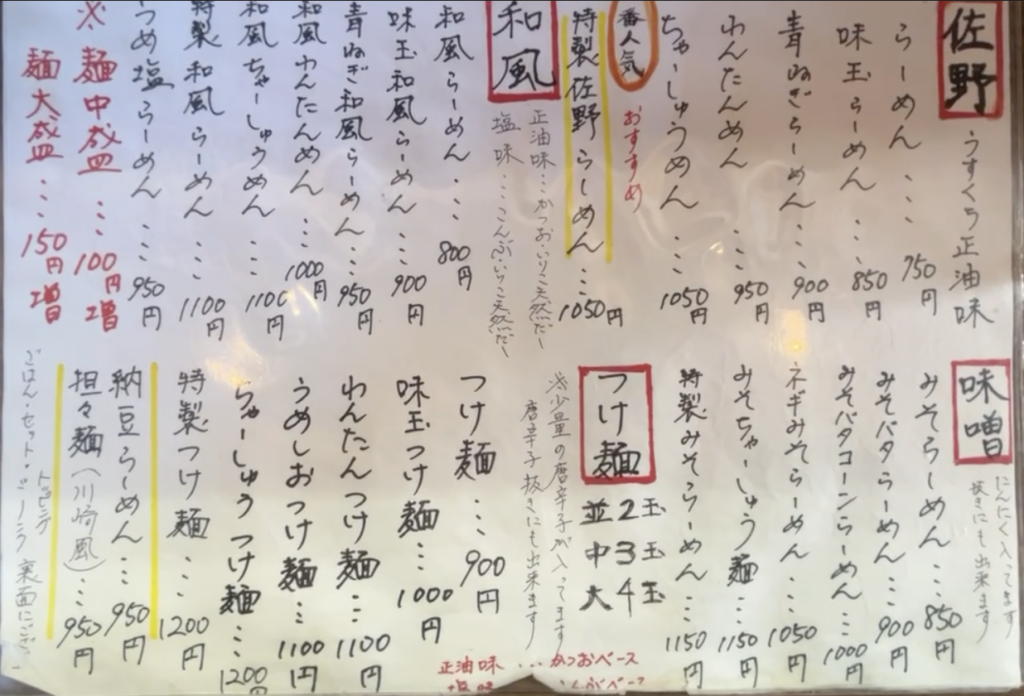 佐野 うすくち正油味
らーめん … 750円
味玉らーめん … 850円
青ねぎらーめん … 900円
わんたんめん … 950円
ちゃーしゅうめん … 1050円
一番人気 おすすめ
特製佐野らーめん … 1050円
和風
正油味 … かつお・いりこ天然だし
塩味 … こんぶ・いりこ天然だし
和風らーめん … 800円
味玉和風らーめん … 900円
青ねぎ和風らーめん … 950円
和風わんたんめん … 1000円
和風ちゃーしゅうめん … 1100円
特製和風らーめん … 1100円
うめ塩らーめん … 950円
※麺中盛 … 100円増
麺大盛 … 150円増
味噌
にんにく入ってます
抜きにも出来ます
みそらーめん … 850円
みそバターらーめん … 900円
みそバターコーンらーめん … 1000円
ネギみそらーめん … 1050円
みそちゃーしゅう麺 … 1150円
特製みそらーめん … 1150円
つけ麺
並2玉
中3玉
大4玉
※少量の唐辛子が入ってます
唐辛子抜きにも出来ます
正油味 … かつおベース
塩味 … こんぶベース
つけ麺 … 900円
味玉つけ麺 … 1000円
わんたんつけ麺 … 1100円
うめしおつけ麺 … 1100円
ちゃーしゅうつけ麺 … 1200円
特製つけ麺 … 1200円
納豆らーめん … 950円
担々麺(川崎風) … 950円
ごはん・セット・トッピング
裏面にござい